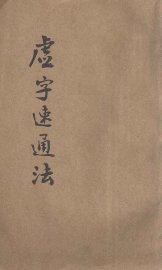 虛字速通法